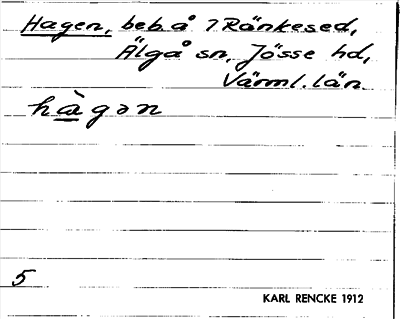 Hagen, beb. å 7 Ränkesed,
Älgå sn, Jösse hd,
Värml. län
hàgən
5
KARL RENCKE 1912